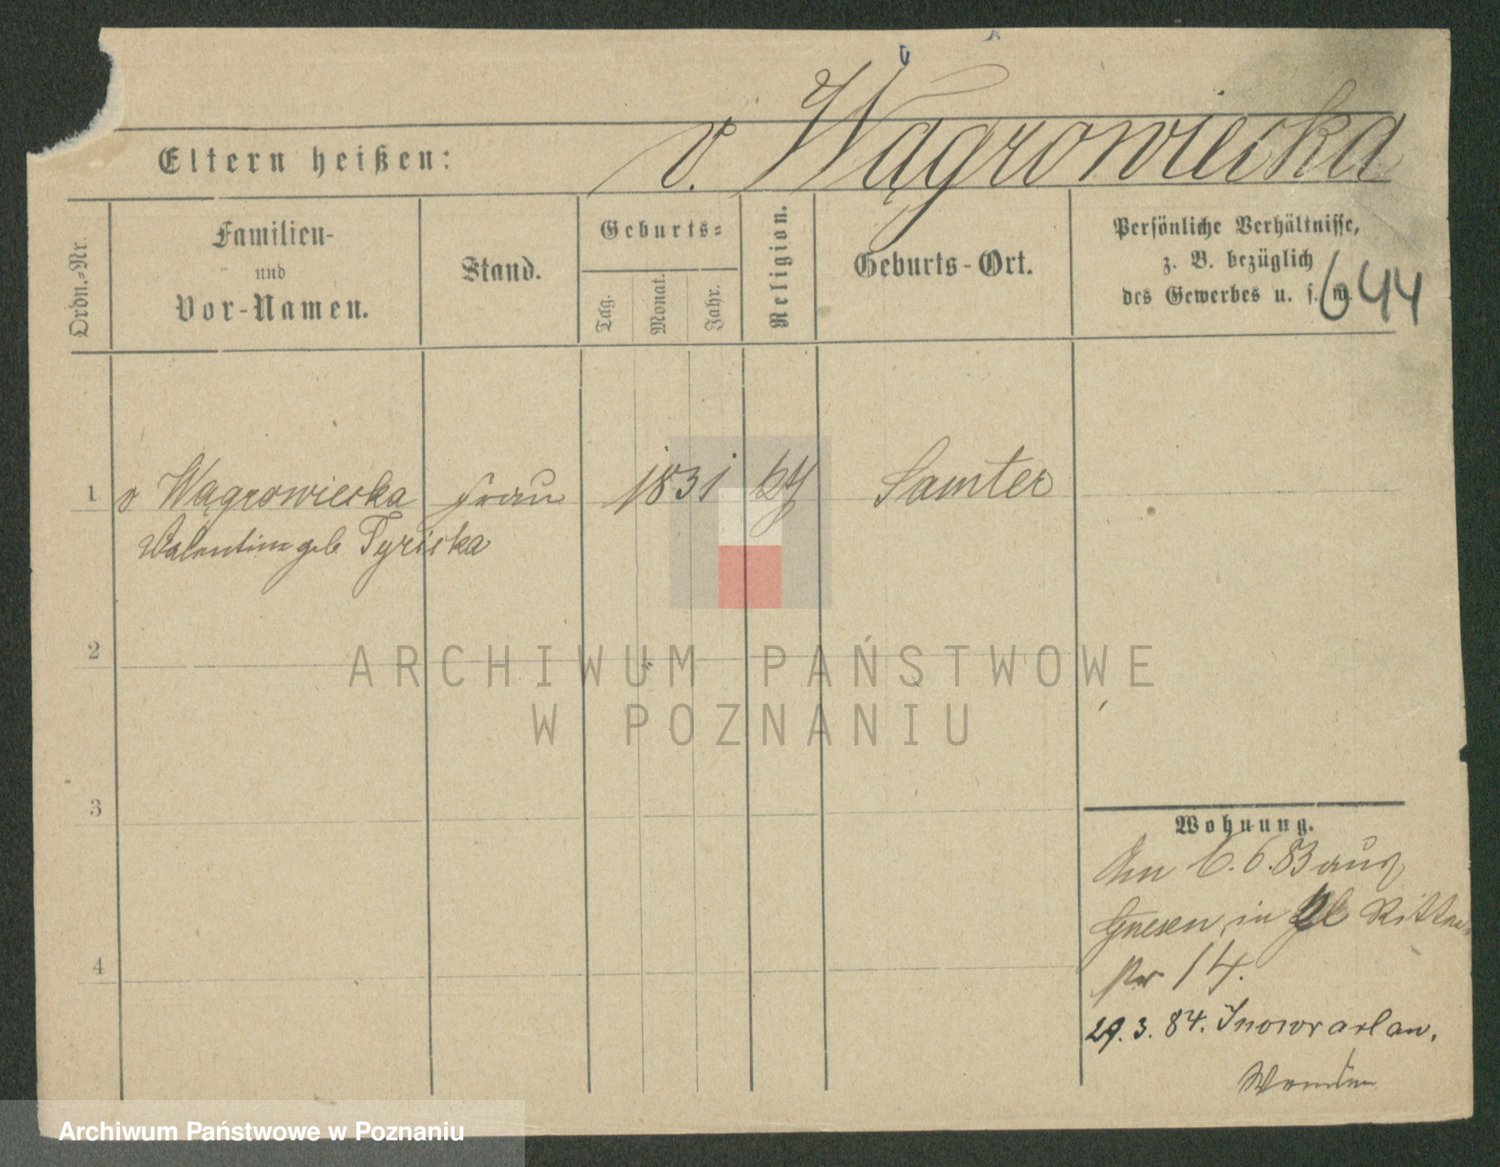 v. Wągrowiecka
Eltern heißen:
Ordn.-Nr.
Familien-
und
Vor-Namen.
Stand.
Geburts-
Tag.
Monat.
Jahr.
Religion.
Geburts-Ort.
Persönliche Verhältnisse,
z. B. bezüglich
des Gewerbes u. s. w.
644
1 v Wągrowiecka Frau 1831 Samter
Valentine geb
2
3
4
Wohnung.
6.6.83 aus
Gnesen, in
Nr 14.
29. 3. 84. Inowrazlaw.
ARCHIWUM PAŃSTWOWE
W POZNANIU
Archiwum Państwowe w Poznaniu